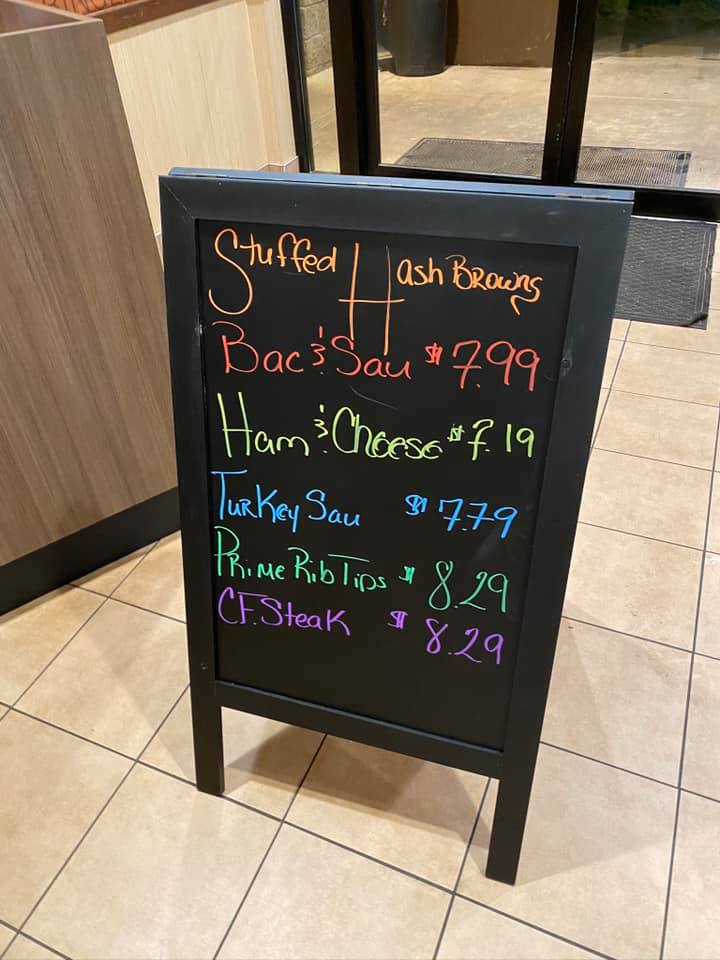 Stuffed Hash Browns
Bac & Sau $7.99
Ham & Cheese $7.19
Turkey Sau $7.79
Prime Rib Tips $8.29
CF. Steak $8.29